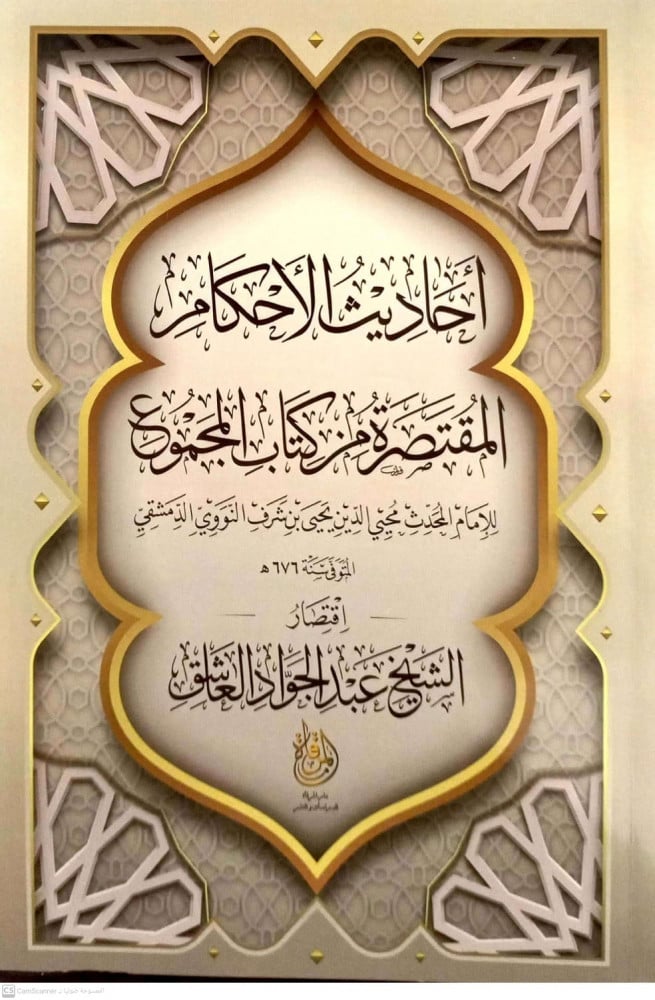 أَحَادِيثُ الأَحْكَامِ
المُقْتَصَرَةُ مِنْ كِتَابِ المَجْمُوعِ
لِلإِمَامِ المُحَدِّثِ مُحْيِي الدِّينِ يَحْيَى بْنِ شَرَفٍ النَّوَوِيِّ الدِّمَشْقِيِّ
المُتَوَفَّى سَنَةَ ٦٧٦ هـ
اِقْتِصَارُ
الشَّيْخِ عَبْدِ الجَوَّادِ العَاشِقِ
CS CamScanner الممسوحة ضوئيا بـ